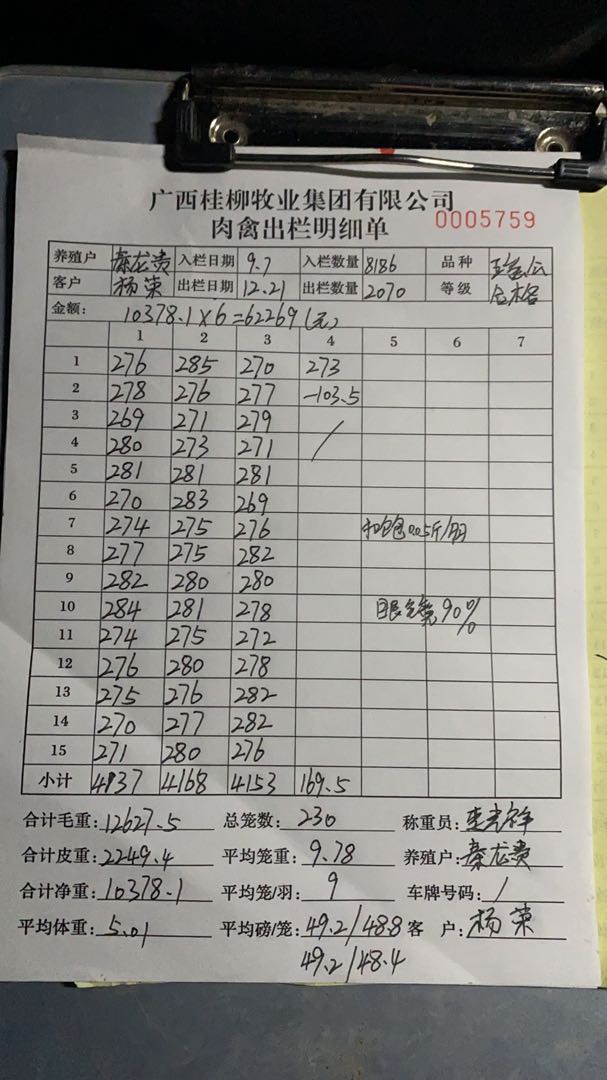 广西桂柳牧业集团有限公司
肉禽出栏明细单 0005759
养殖户 秦龙贵 入栏日期 9.7 入栏数量 8186 品种
客户 杨荣 出栏日期 12.21 出栏数量 2070 等级 合格
金额: 10378.1×6=62269(元)
1 2 3 4 5 6 7
1 276 285 270 273
2 278 276 277 -103.5
3 269 271 279
4 280 273 271 /
5 281 281 281
6 270 283 269
7 274 275 276 扣包0.05斤/羽
8 277 275 282
9 282 280 280
10 284 281 278 眼镜90%
11 274 275 272
12 276 280 278
13 275 276 282
14 270 277 282
15 271 280 276
小计 4137 4168 4153 169.5
合计毛重: 12627.5 总笼数: 230 称重员:
合计皮重: 2249.4 平均笼重: 9.78 养殖户: 秦龙贵
合计净重: 10378.1 平均笼/羽: 9 车牌号码: /
平均体重: 5.01 平均磅/笼: 49.2/48.8 客户: 杨荣
49.2/48.4